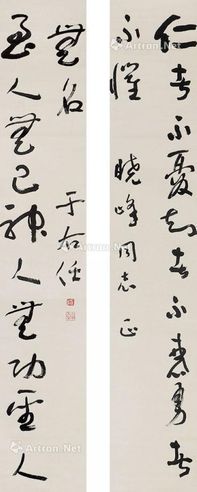 仁者不憂知者不惑勇者
不懼
曉峰同志正
至人無己神人無功聖人
無名
于右任
Artron.Net
Artron.Net
Artron.Net
Artron.Net